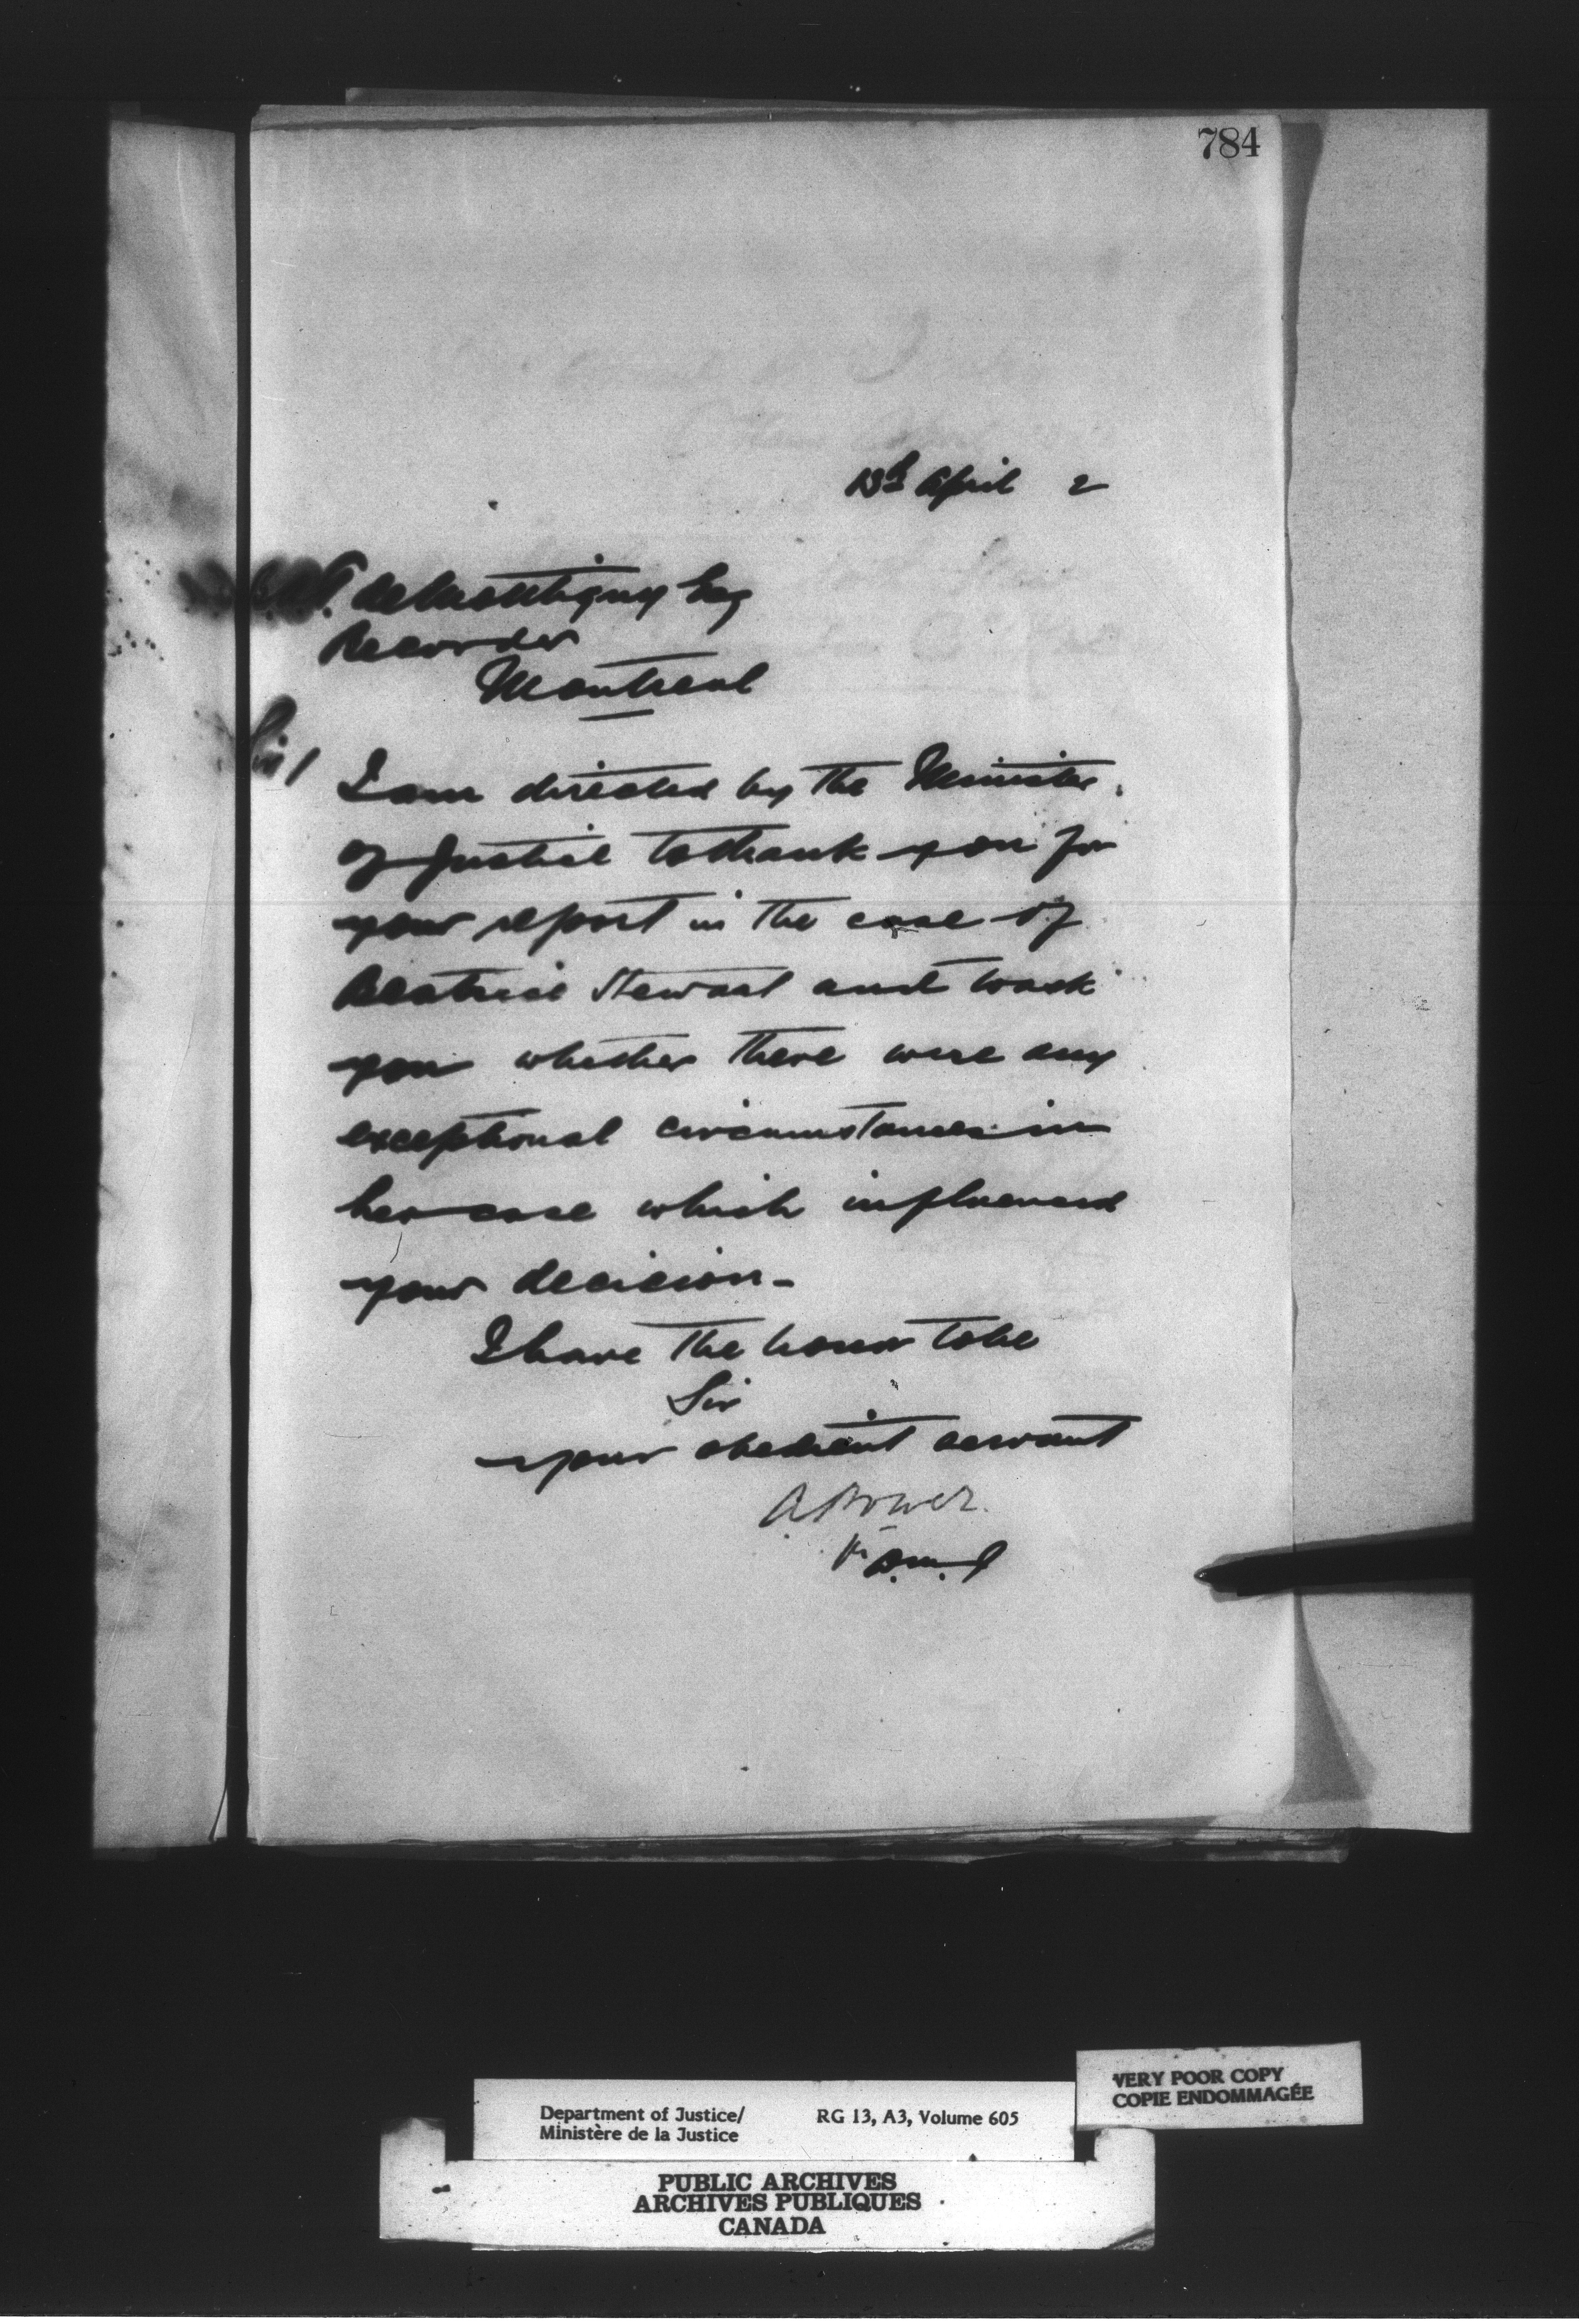 784
13th April 2
deMontigny Esq
Recorder
Montreal
Sir/
I am directed by the Minister
of Justice to thank you for
your report in the case of
Beatrice Stewart and to ask
you whether there were any
exceptional circumstances in
her case which influenced
your decision -
I have the honor to be
Sir
your obedient servant
A Power
D.M.J
VERY POOR COPY
COPIE ENDOMMAGÉE
Department of Justice/ RG 13, A3, Volume 605
Ministère de la Justice
PUBLIC ARCHIVES
ARCHIVES PUBLIQUES
CANADA